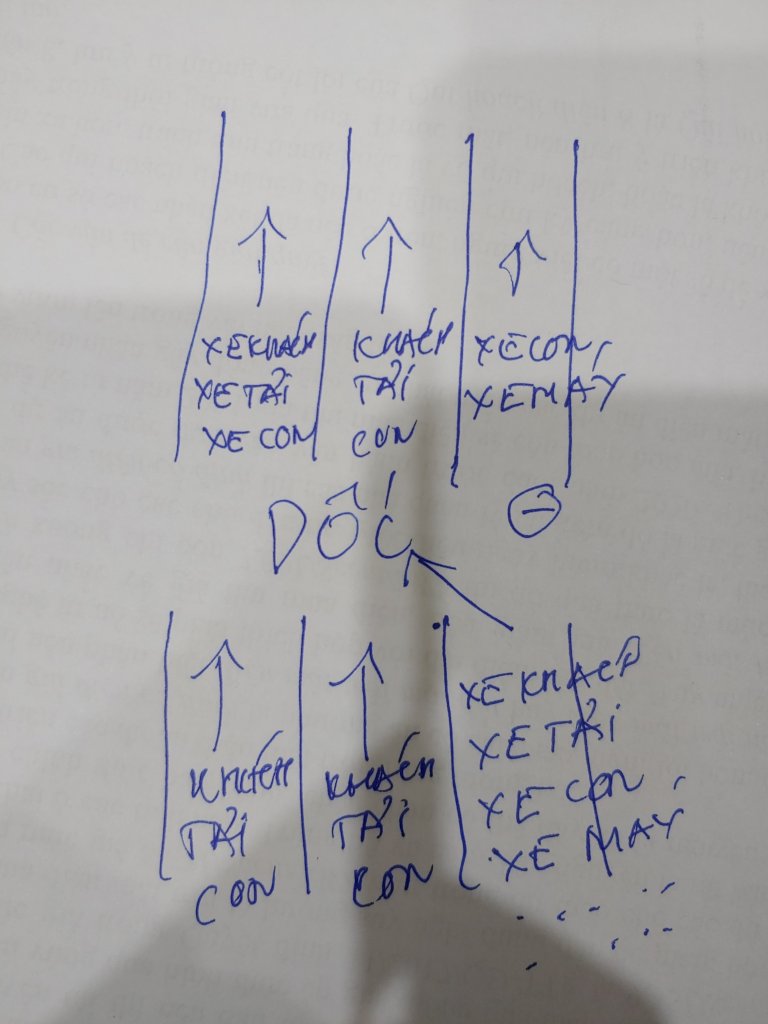 XE KHÁCH
XE TẢI
XE CON
KHÁCH
TẢI
CON
XE CON,
XE MÁY
DỐC
KHÁCH
TẢI
CON
KHÁCH
TẢI
CON
XE KHÁCH
XE TẢI
XE CON
XE MÁY